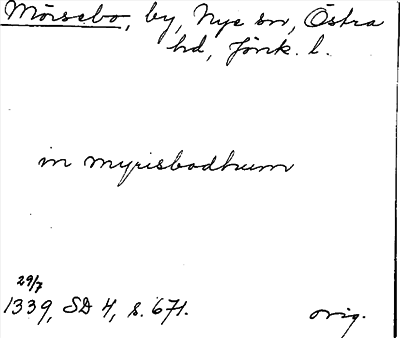 Mörsebo, by, Nye sn, Östra
hd, Jönk. l.
in myrisbodhum
29/7
1339, SD 4, s. 671.
orig.